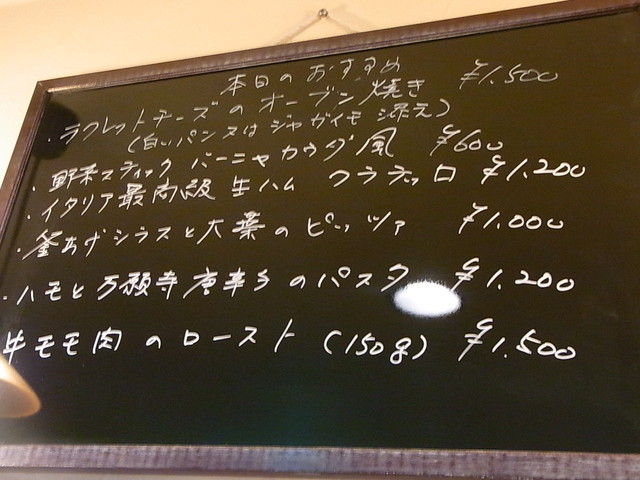 本日のおすすめ
・ラクレットチーズのオーブン焼き ¥1.500
(白いパン又は ジャガイモ 添え)
・野菜スティック バーニャカウダ風 ¥600
・イタリア最高級 生ハム クラテッロ ¥1.200
・釜あげシラスと大葉のピッツァ ¥1.000
・ハモと万願寺唐辛子のパスタ ¥1.200
牛モモ肉のロースト (150g) ¥1.500